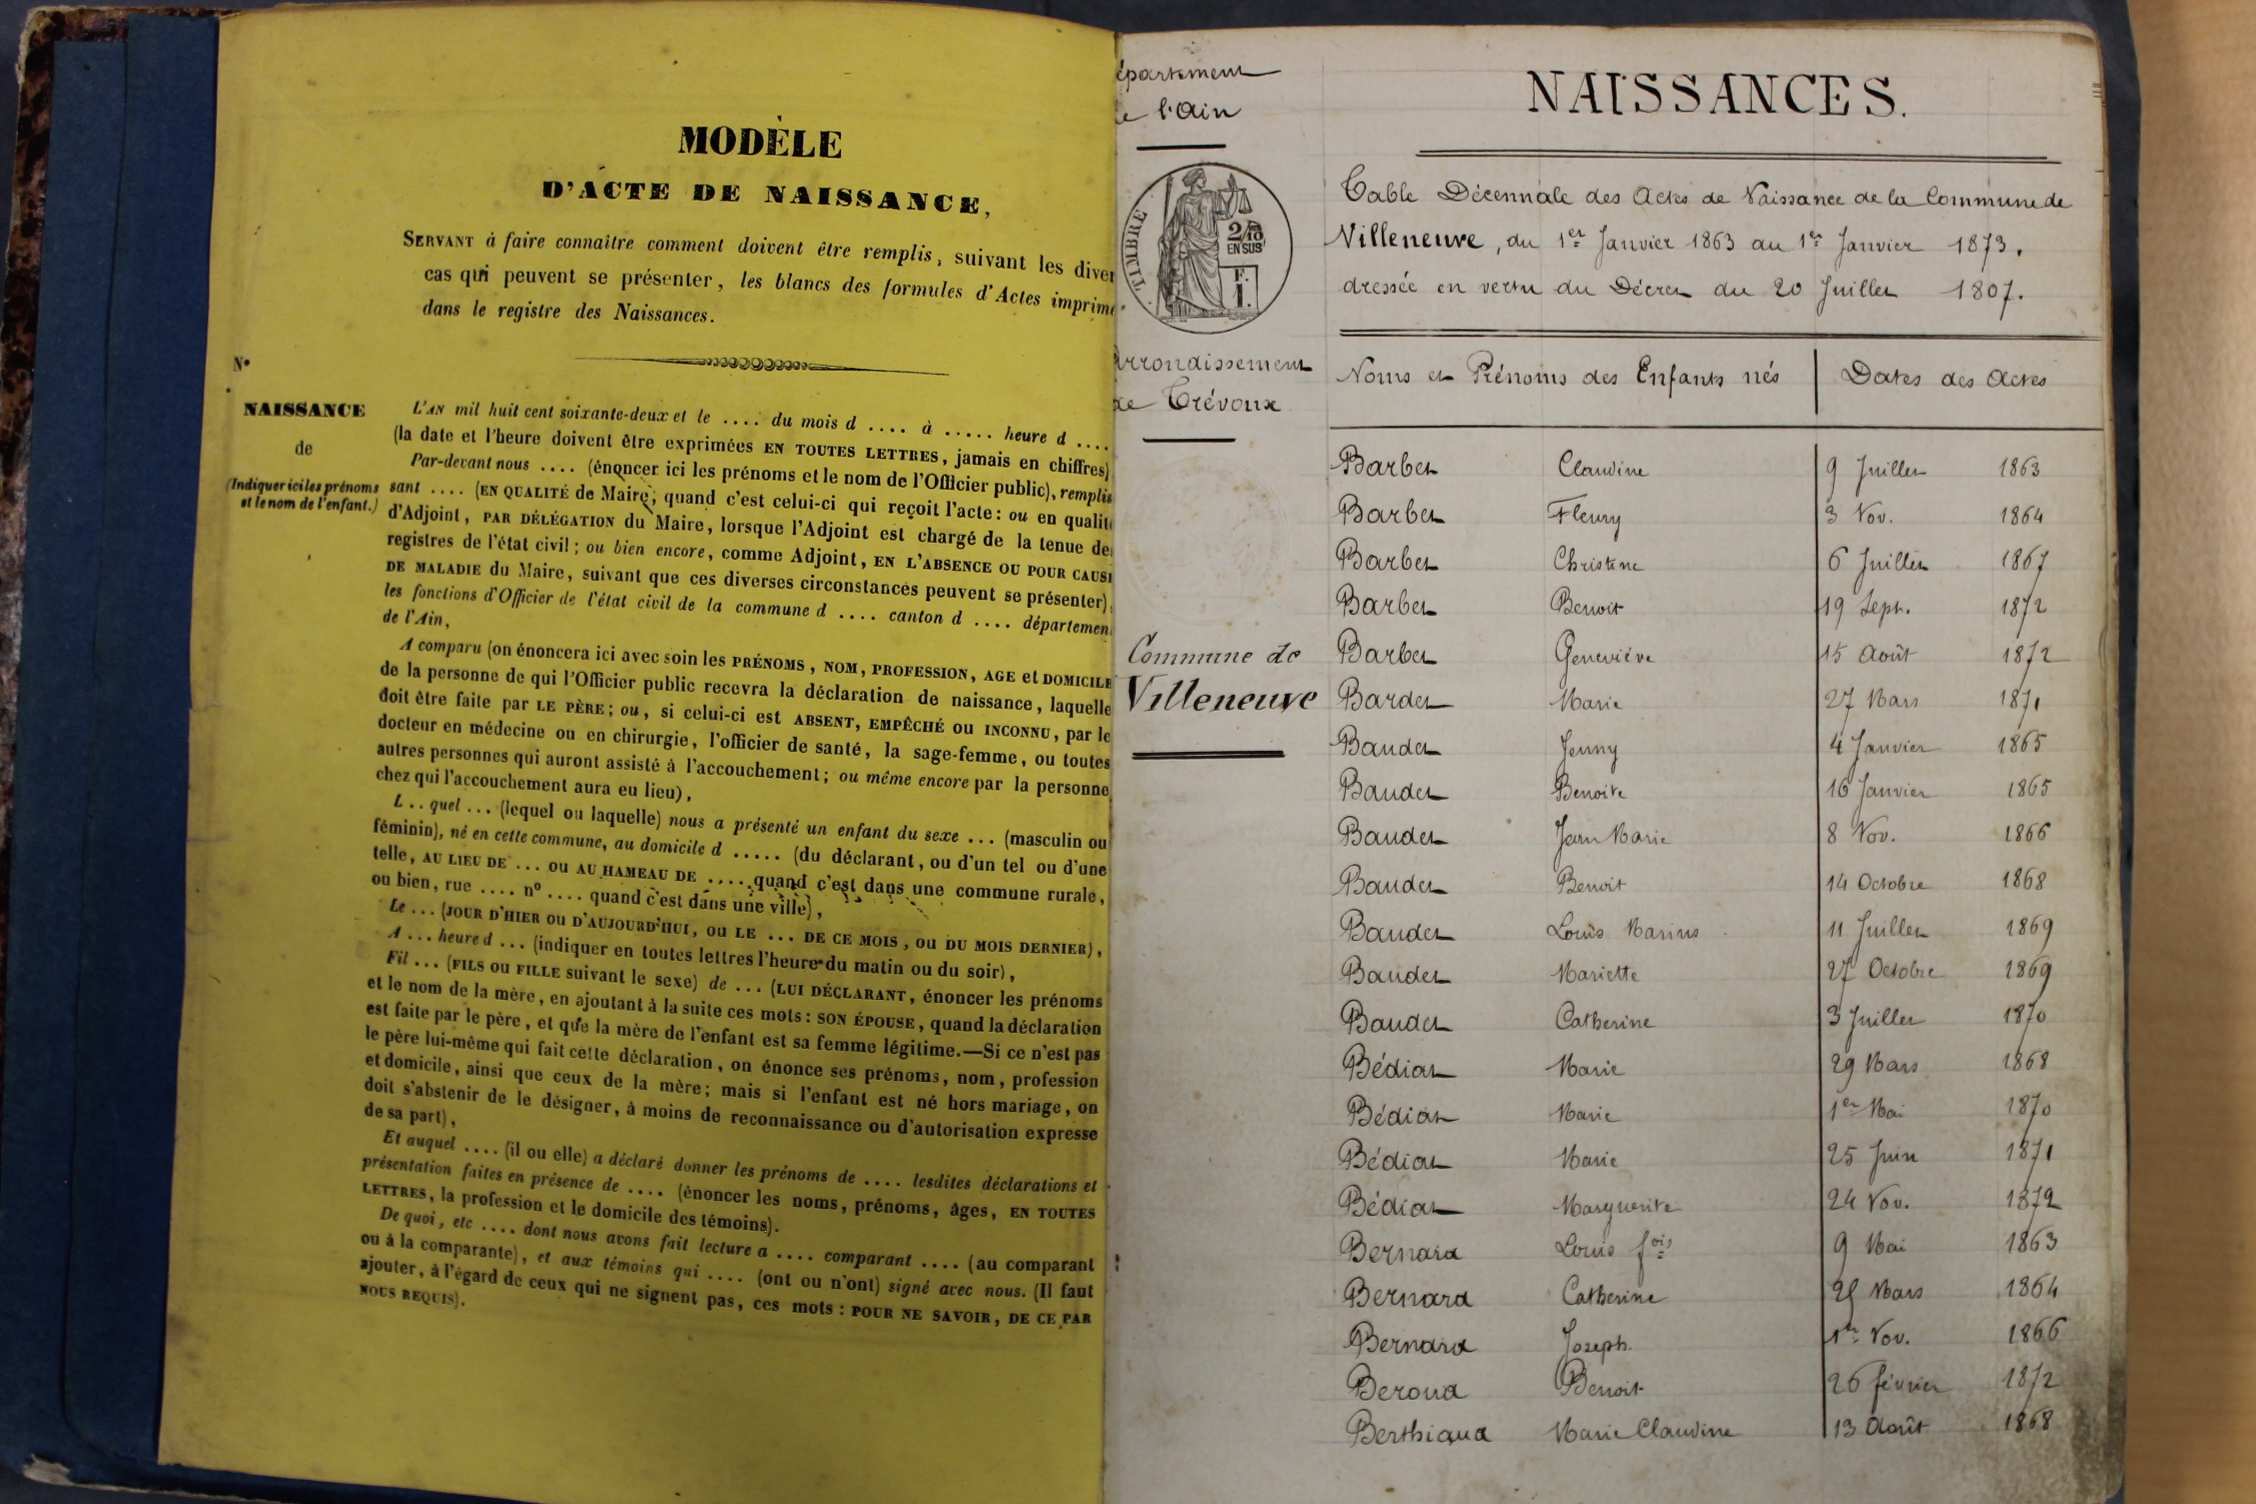 MODÈLE
D'ACTE DE NAISSANCE,
SERVANT à faire connaître comment doivent être remplis, suivant les diver
cas qui peuvent se présenter, les blancs des formules d'Actes imprimé
dans le registre des Naissances.
N°
NAISSANCE
de
(Indiquer ici les prénoms
et le nom de l'enfant.)
L'AN mil huit cent soixante-deux et le .... du mois d .... à ..... heure d ....
(la date et l'heure doivent être exprimées EN TOUTES LETTRES, jamais en chiffres)
Par-devant nous .... (énoncer ici les prénoms et le nom de l'Officier public), remplis
sant .... (EN QUALITÉ de Maire, quand c'est celui-ci qui reçoit l'acte: ou en qualité
d'Adjoint, PAR DÉLÉGATION du Maire, lorsque l'Adjoint est chargé de la tenue de
registres de l'état civil; ou bien encore, comme Adjoint, EN L'ABSENCE OU POUR CAUSE
DE MALADIE du Maire, suivant que ces diverses circonstances peuvent se présenter)
les fonctions d'Officier de l'état civil de la commune d .... canton d .... départemen
de l'Ain,
A comparu (on énoncera ici avec soin les PRÉNOMS, NOM, PROFESSION, AGE et DOMICILE
de la personne de qui l'Officier public recevra la déclaration de naissance, laquelle
doit être faite par LE PÈRE; ou, si celui-ci est ABSENT, EMPÊCHÉ OU INCONNU, par le
docteur en médecine ou en chirurgie, l'officier de santé, la sage-femme, ou toutes
autres personnes qui auront assisté à l'accouchement; ou même encore par la personne
chez qui l'accouchement aura eu lieu),
L .. quel ... (lequel ou laquelle) nous a présenté un enfant du sexe ... (masculin ou
féminin), né en cette commune, au domicile d ..... (du déclarant, ou d'un tel ou d'une
telle, AU LIEU DE ... OU AU HAMEAU DE ..... quand c'est dans une commune rurale,
ou bien, rue .... n° .... quand c'est dans une ville),
Le ... (JOUR D'HIER OU D'AUJOURD'HUI, OU LE ... DE CE MOIS, OU DU MOIS DERNIER),
A ... heure d ... (indiquer en toutes lettres l'heure du matin ou du soir),
Fil ... (FILS OU FILLE suivant le sexe) de ... (LUI DÉCLARANT, énoncer les prénoms
et le nom de la mère, en ajoutant à la suite ces mots: SON ÉPOUSE, quand la déclaration
est faite par le père, et que la mère de l'enfant est sa femme légitime.—Si ce n'est pas
le père lui-même qui fait cette déclaration, on énonce ses prénoms, nom, profession
et domicile, ainsi que ceux de la mère; mais si l'enfant est né hors mariage, on
doit s'abstenir de le désigner, à moins de reconnaissance ou d'autorisation expresse
de sa part),
Et auquel .... (il ou elle) a déclaré donner les prénoms de .... lesdites déclarations et
présentation faites en présence de .... (énoncer les noms, prénoms, âges, EN TOUTES
LETTRES, la profession et le domicile des témoins).
De quoi, etc .... dont nous avons fait lecture a .... comparant .... (au comparant
ou à la comparante), et aux témoins qui .... (ont ou n'ont) signé avec nous. (Il faut
ajouter, à l'égard de ceux qui ne signent pas, ces mots: POUR NE SAVOIR, DE CE PAR
NOUS REQUIS).
épartement
de l'Ain
TIMBRE
2/10
EN SUS
F.
1.
Arrondissement
de Trévoux
Commune de
Villeneuve
NAISSANCES.
Table Décennale des Actes de Naissance de la Commune de
Villeneuve, du 1er Janvier 1863 au 1er Janvier 1873.
dressée en vertu du Décret du 20 Juillet 1807.
Noms et Prénoms des Enfants nés Dates des Actes
Barbet Claudine 9 Juillet 1863
Barbet Fleury 3 Nov. 1864
Barbet Christine 6 Juillet 1867
Barbet Benoit 19 Sept. 1872
Barbet Geneviève 15 Août 1872
Bardet Marie 27 Mars 1871
Baudet Jenny 4 Janvier 1865
Baudet Benoite 16 Janvier 1865
Baudet Jean Marie 8 Nov. 1866
Baudet Benoit 14 Octobre 1868
Baudet Louis Marius 11 Juillet 1869
Baudet Mariette 27 Octobre 1869
Baudet Catherine 3 Juillet 1870
Bédiat Marie 29 Mars 1868
Bédiat Marie 1er Mai 1870
Bédiat Marie 25 Juin 1871
Bédiat Marguerite 24 Nov. 1872
Bernard Louis fois 9 Mai 1863
Bernard Catherine Mars 1864
Bernard Joseph. 1er Nov. 1866
Beroud Benoit 26 février 1872
Berthiaud Marie Claudine 13 Août 1868